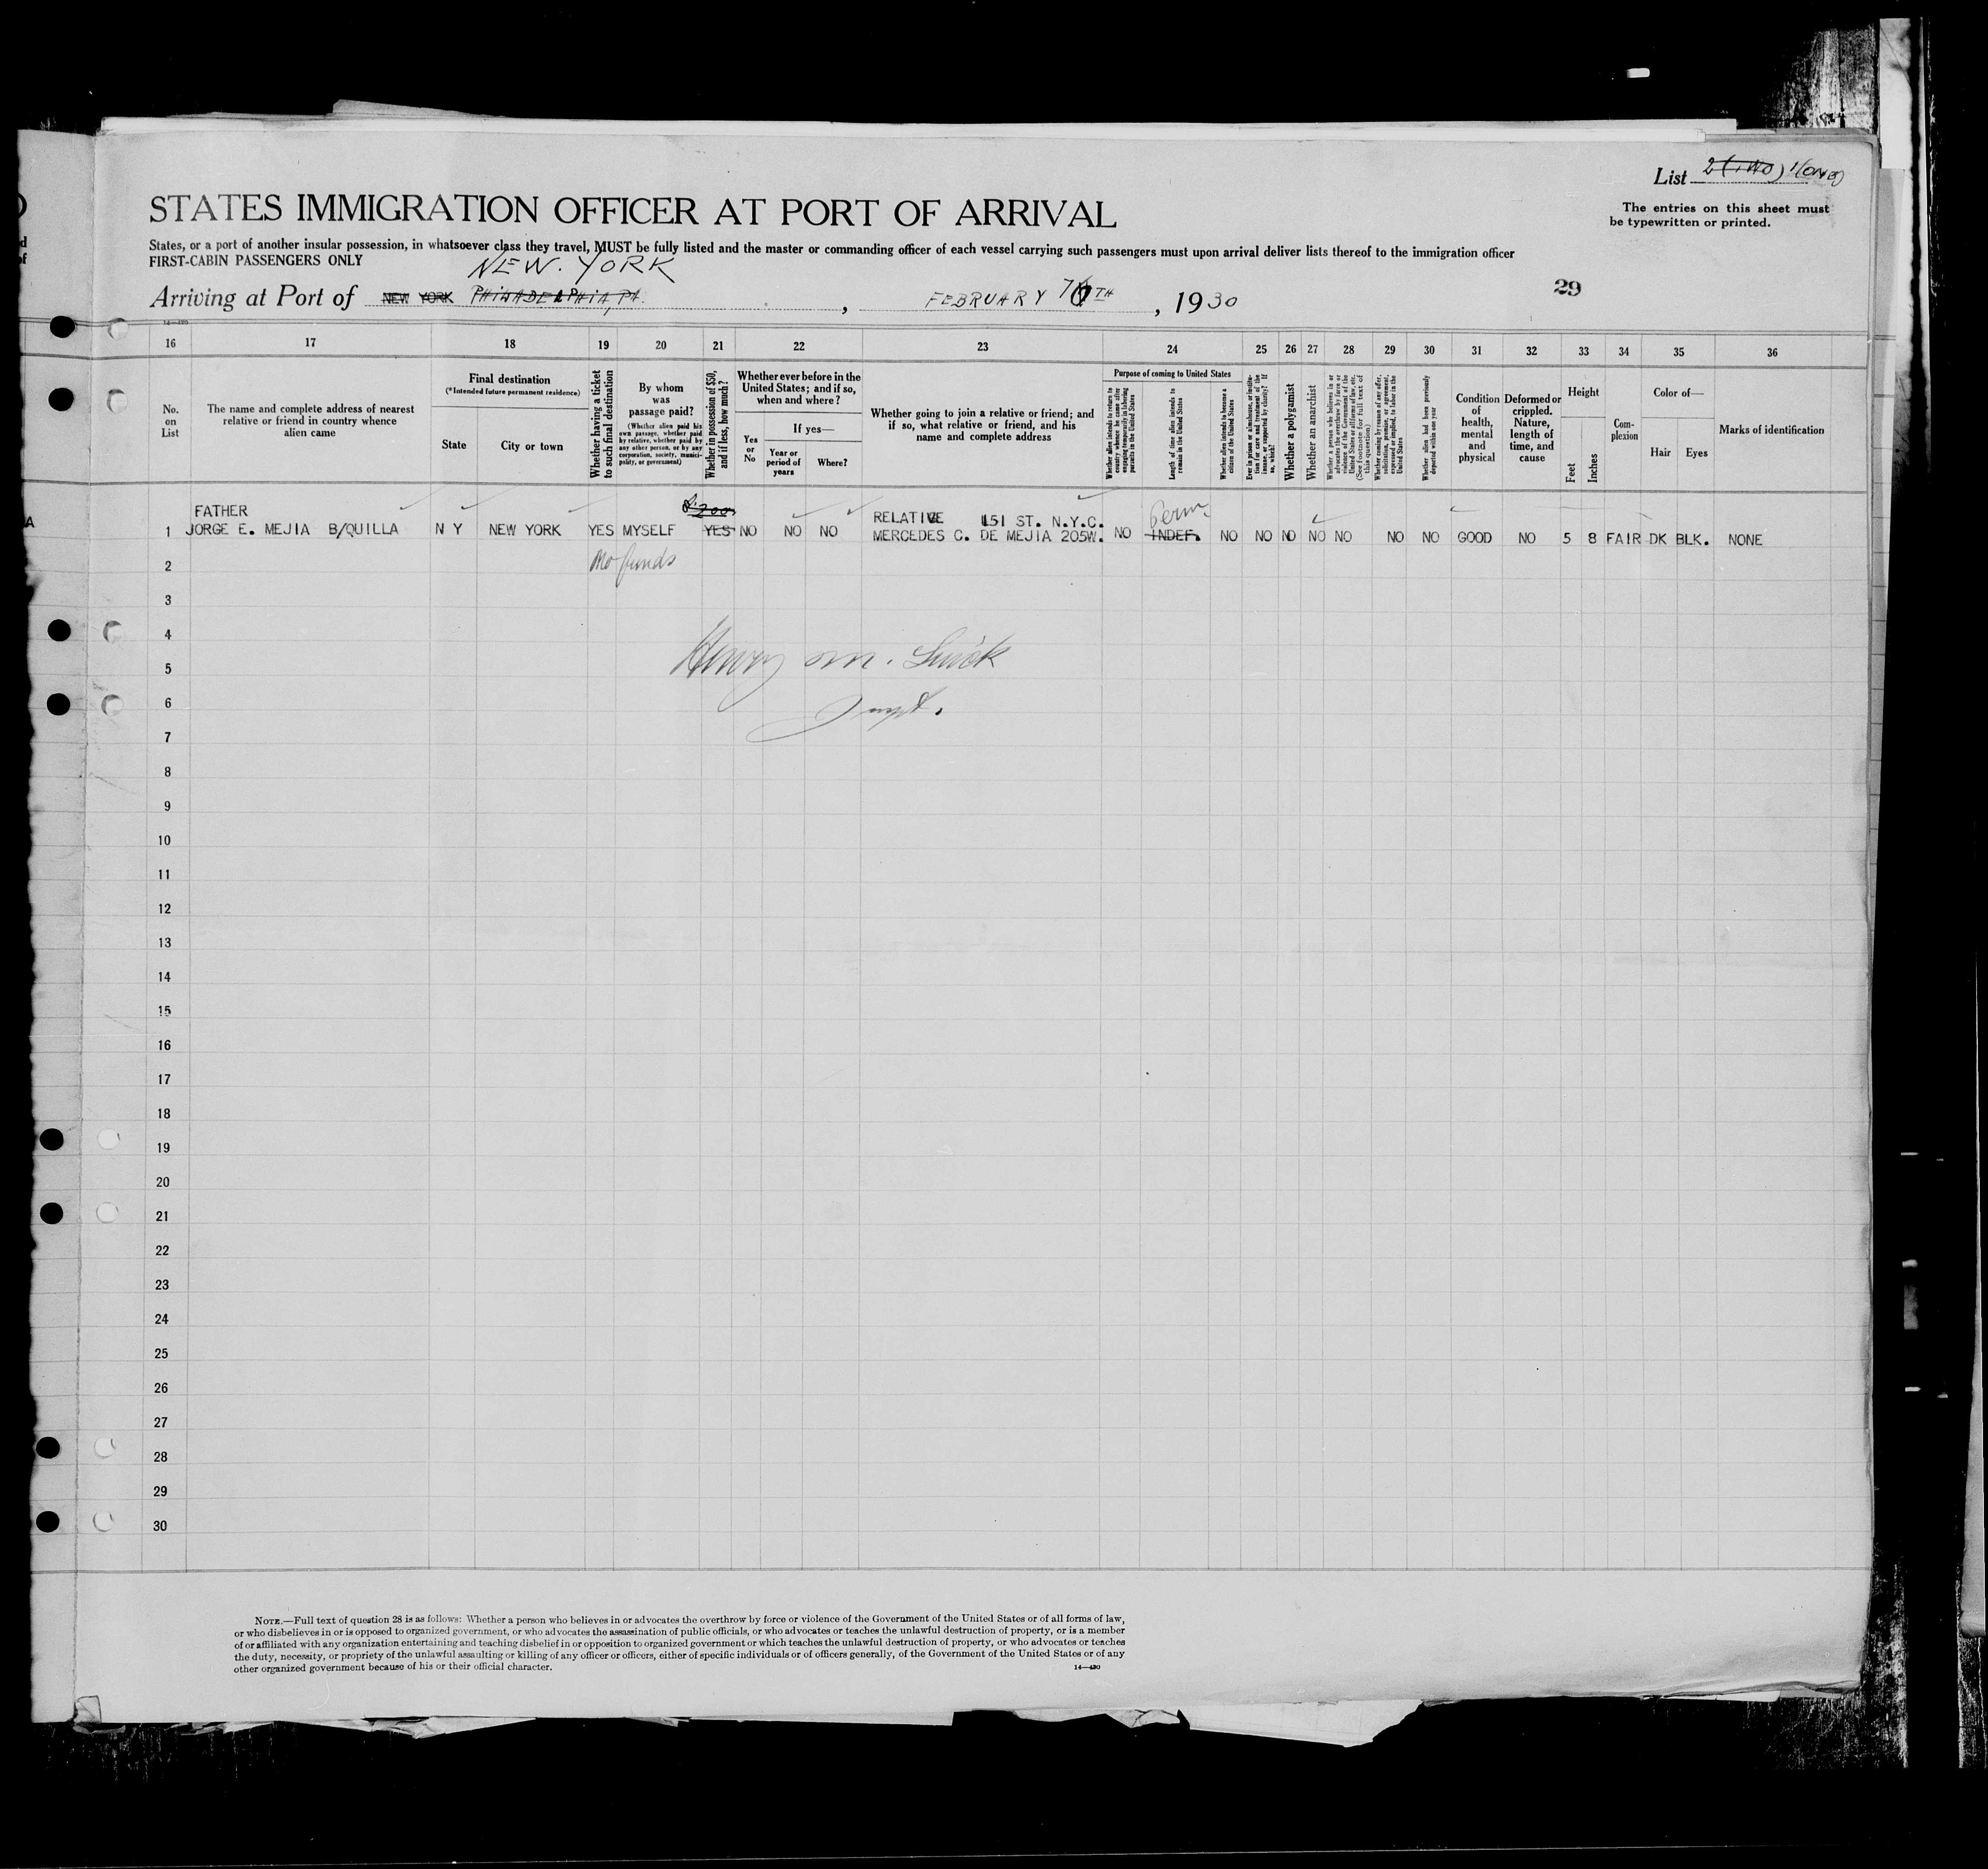 List 2 (TWO) 1 (ONE)
The entries on this sheet must
be typewritten or printed.
STATES IMMIGRATION OFFICER AT PORT OF ARRIVAL
States, or a port of another insular possession, in whatsoever class they travel, MUST be fully listed and the master or commanding officer of each vessel carrying such passengers must upon arrival deliver lists thereof to the immigration officer
FIRST-CABIN PASSENGERS ONLY
NEW. YORK
Arriving at Port of NEW YORK PHILADELPHIA, PA. , FEBRUARY 7TH , 1930
29
14—430
16 17 18 19 20 21 22 23 24 25 26 27 28 29 30 31 32 33 34 35 36
No. on List
The name and complete address of nearest relative or friend in country whence alien came
Final destination
(*Intended future permanent residence)
State
City or town
Whether having a ticket to such final destination
By whom was passage paid?
(Whether alien paid his own passage, whether paid by relative, whether paid by any other person, or by any corporation, society, municipality, or government)
Whether in possession of $50, and if less, how much?
Whether ever before in the United States; and if so, when and where?
Yes or No
If yes—
Year or period of years
Where?
Whether going to join a relative or friend; and if so, what relative or friend, and his name and complete address
Purpose of coming to United States
Whether alien intends to return to country whence he came after engaging temporarily in laboring pursuits in the United States
Length of time alien intends to remain in the United States
Whether alien intends to become a citizen of the United States
Ever in prison or almshouse, or institution for care and treatment of the insane, or supported by charity? If so, which?
Whether a polygamist
Whether an anarchist
Whether a person who believes in or advocates the overthrow by force or violence of the Government of the United States or all forms of law, etc. (See footnote for full text of this question)
Whether coming by reason of any offer, solicitation, promise, or agreement, expressed or implied, to labor in the United States
Whether alien had been previously deported within one year
Condition of health, mental and physical
Deformed or crippled. Nature, length of time, and cause
Height
Feet
Inches
Complexion
Color of—
Hair
Eyes
Marks of identification
FATHER $200 RELATIVE 151 ST. N.Y.C. Perm.
1 JORGE E. MEJIA B/QUILLA N Y NEW YORK YES MYSELF YES NO NO NO MERCEDES C. DE MEJIA 205W. NO INDEF. NO NO NO NO NO NO NO GOOD NO 5 8 FAIR DK BLK. NONE
2 No funds
3
4
Henry M.
5
6
7
8
9
10
11
12
13
14
15
16
17
18
19
20
21
22
23
24
25
26
27
28
29
30
NOTE.—Full text of question 28 is as follows: Whether a person who believes in or advocates the overthrow by force or violence of the Government of the United States or of all forms of law,
or who disbelieves in or is opposed to organized government, or who advocates the assassination of public officials, or who advocates or teaches the unlawful destruction of property, or is a member
of or affiliated with any organization entertaining and teaching disbelief in or opposition to organized government or which teaches the unlawful destruction of property, or who advocates or teaches
the duty, necessity, or propriety of the unlawful assaulting or killing of any officer or officers, either of specific individuals or of officers generally, of the Government of the United States or of any
other organized government because of his or their official character.
14—430